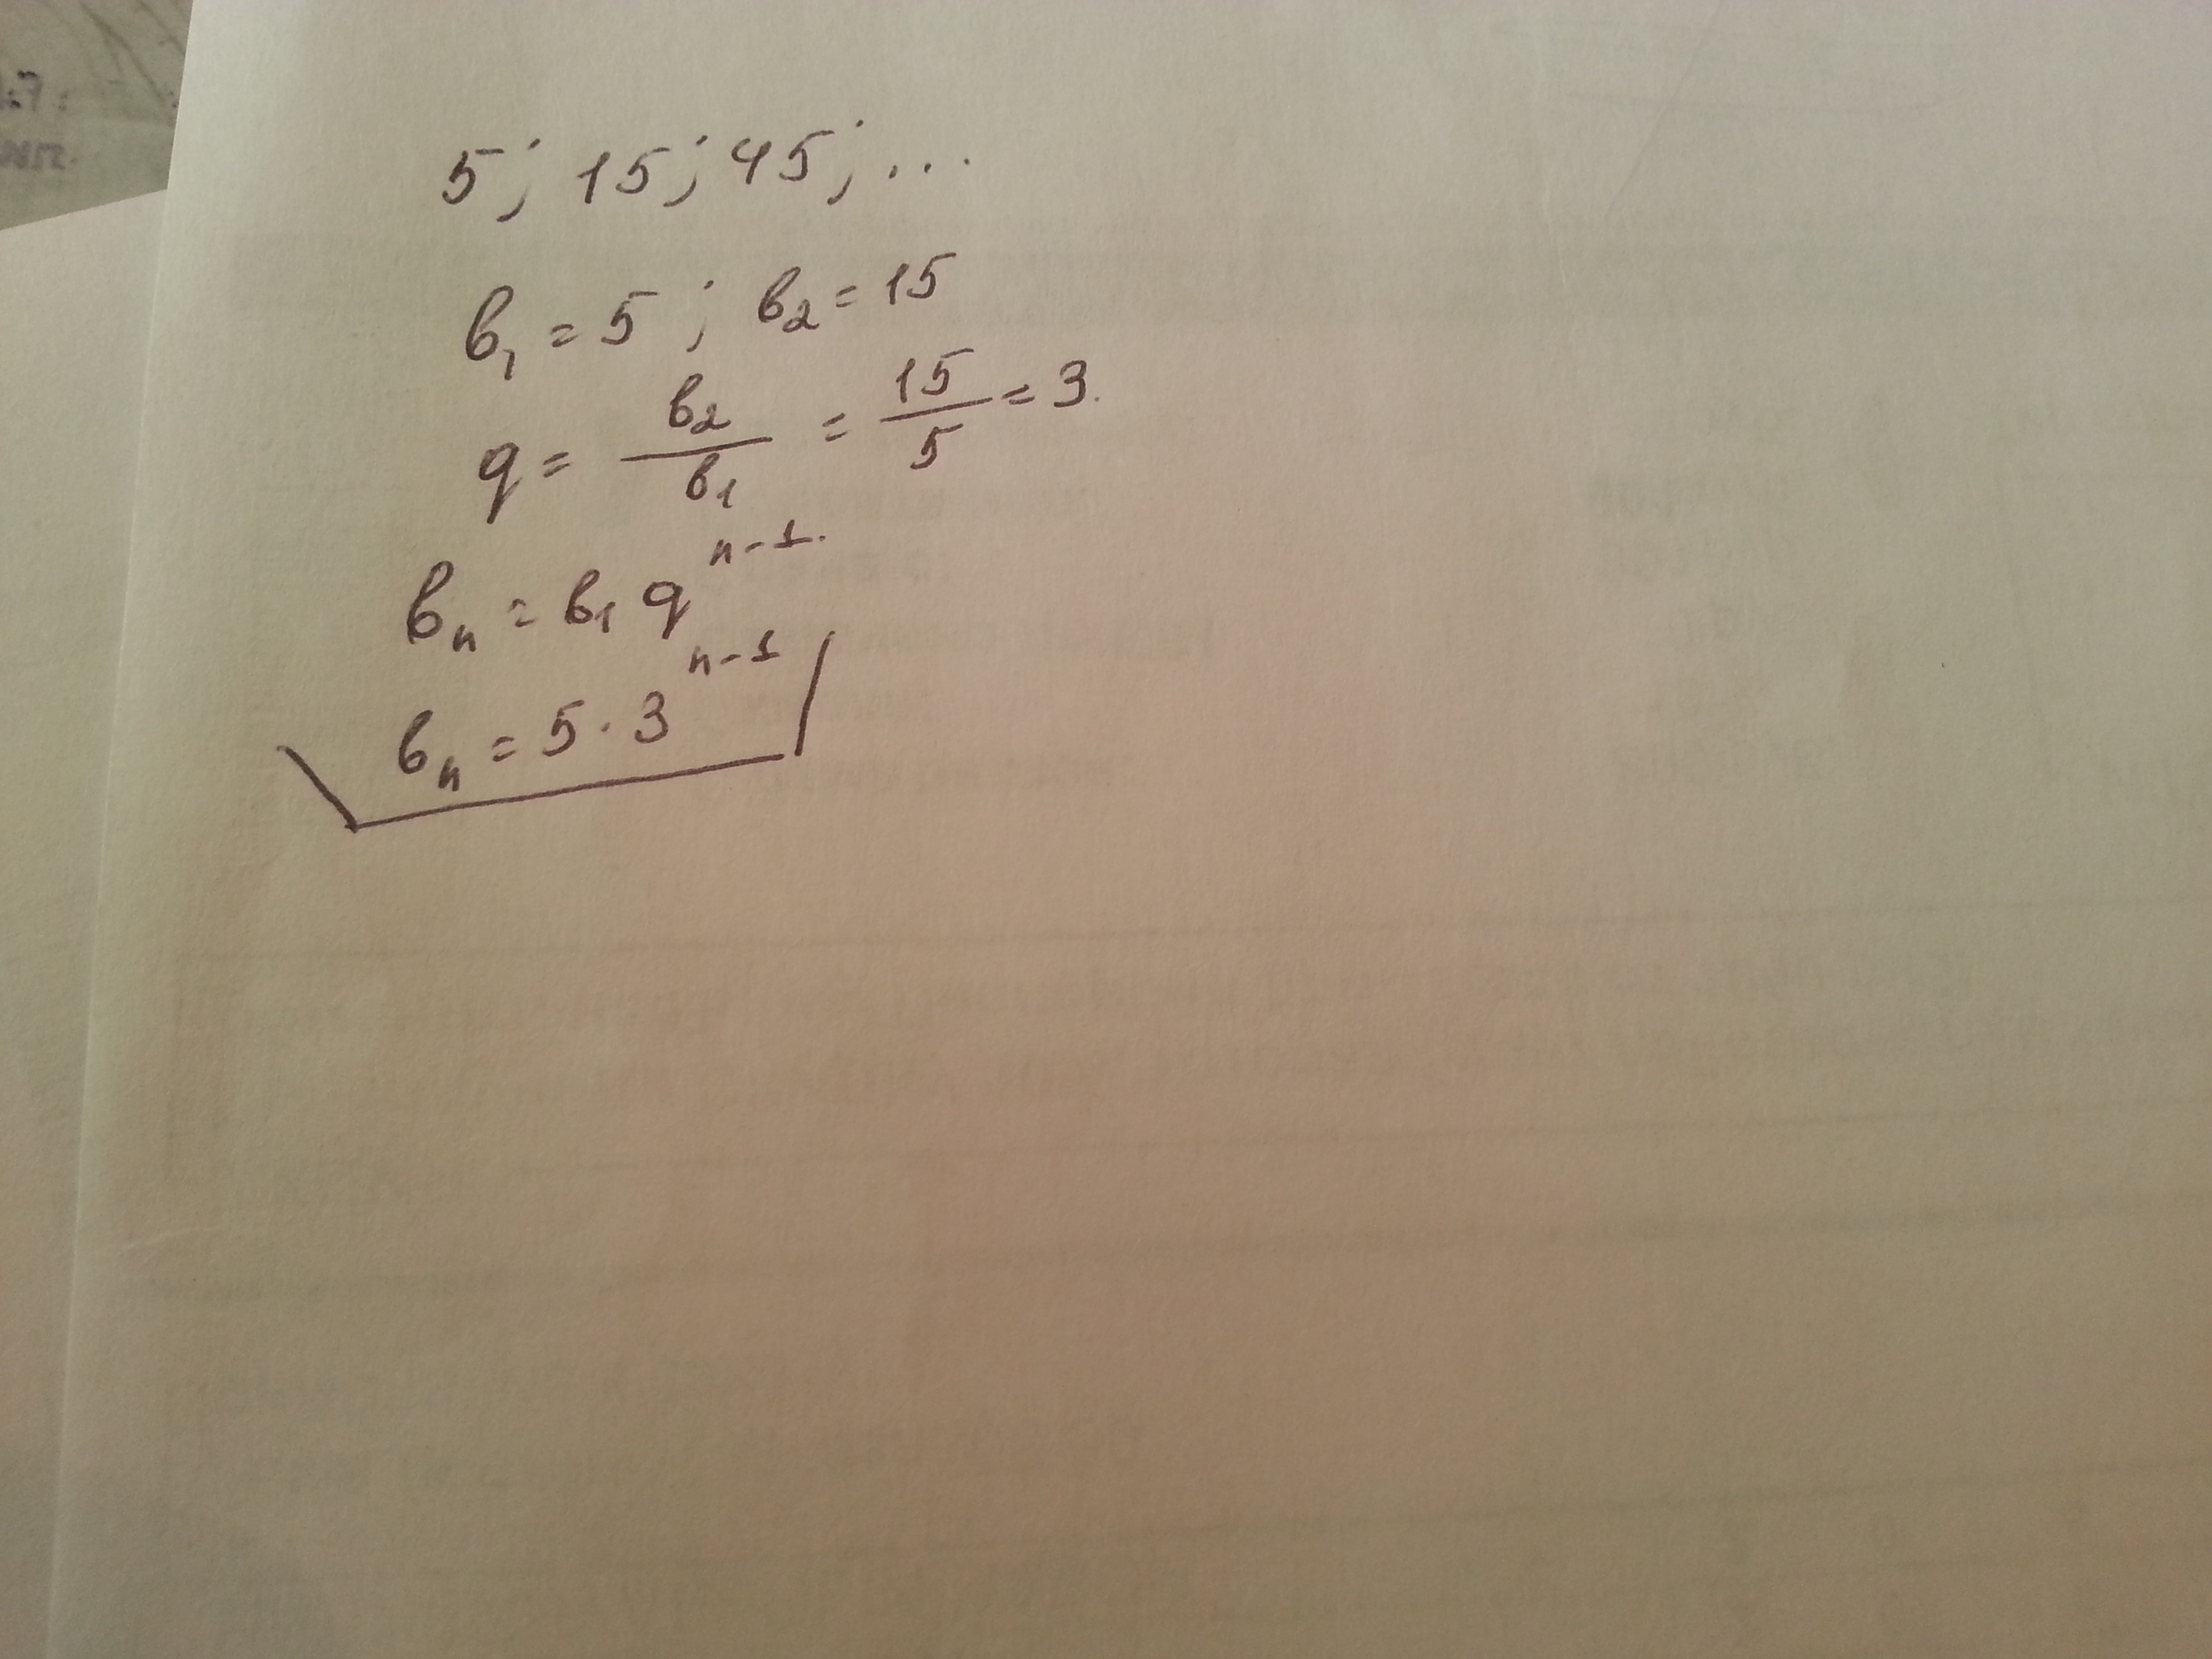 5; 15; 45; ...
b₁ = 5; b₂ = 15
q = b₂/b₁ = 15/5 = 3.
bₙ = b₁ qⁿ⁻¹.
bₙ = 5 · 3ⁿ⁻¹